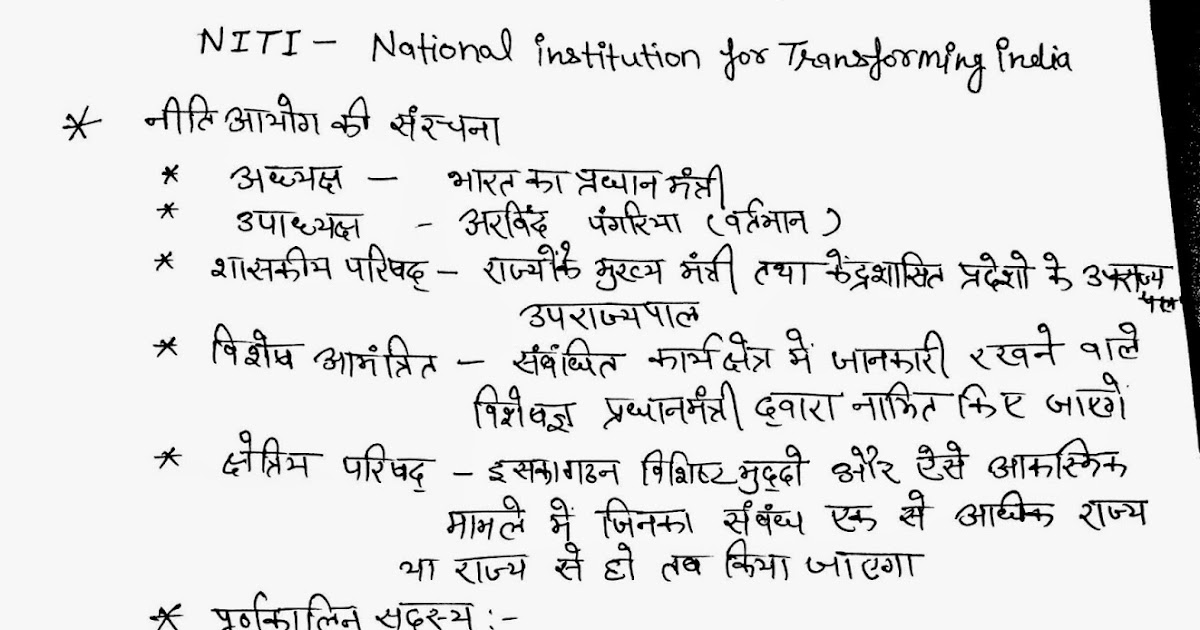 NITI - National institution for Transforming india
* नीति आयोग की संरचना
* अध्यक्ष - भारत का प्रधान मंत्री
* उपाध्यक्ष - अरविंद पंगरिया (वर्तमान)
* शासकीय परिषद् - राज्यों के मुख्य मंत्री तथा केंद्रशासित प्रदेशो के उपराज्य
पाल
उपराज्यपाल
* विशेष आमंत्रित - संबंधित कार्यक्षेत्र में जानकारी रखने वाले
विशेषज्ञ प्रधानमंत्री द्वारा नामित किए जाएगें
* क्षेत्रिय परिषद् - इसका गठन विशिष्ट मुद्दो और ऐसे आकस्मिक
मामले में जिनका संबंध एक से अधिक राज्य
या राज्य से हो तब किया जाएगा
* पूर्णकालिन सदस्य :-